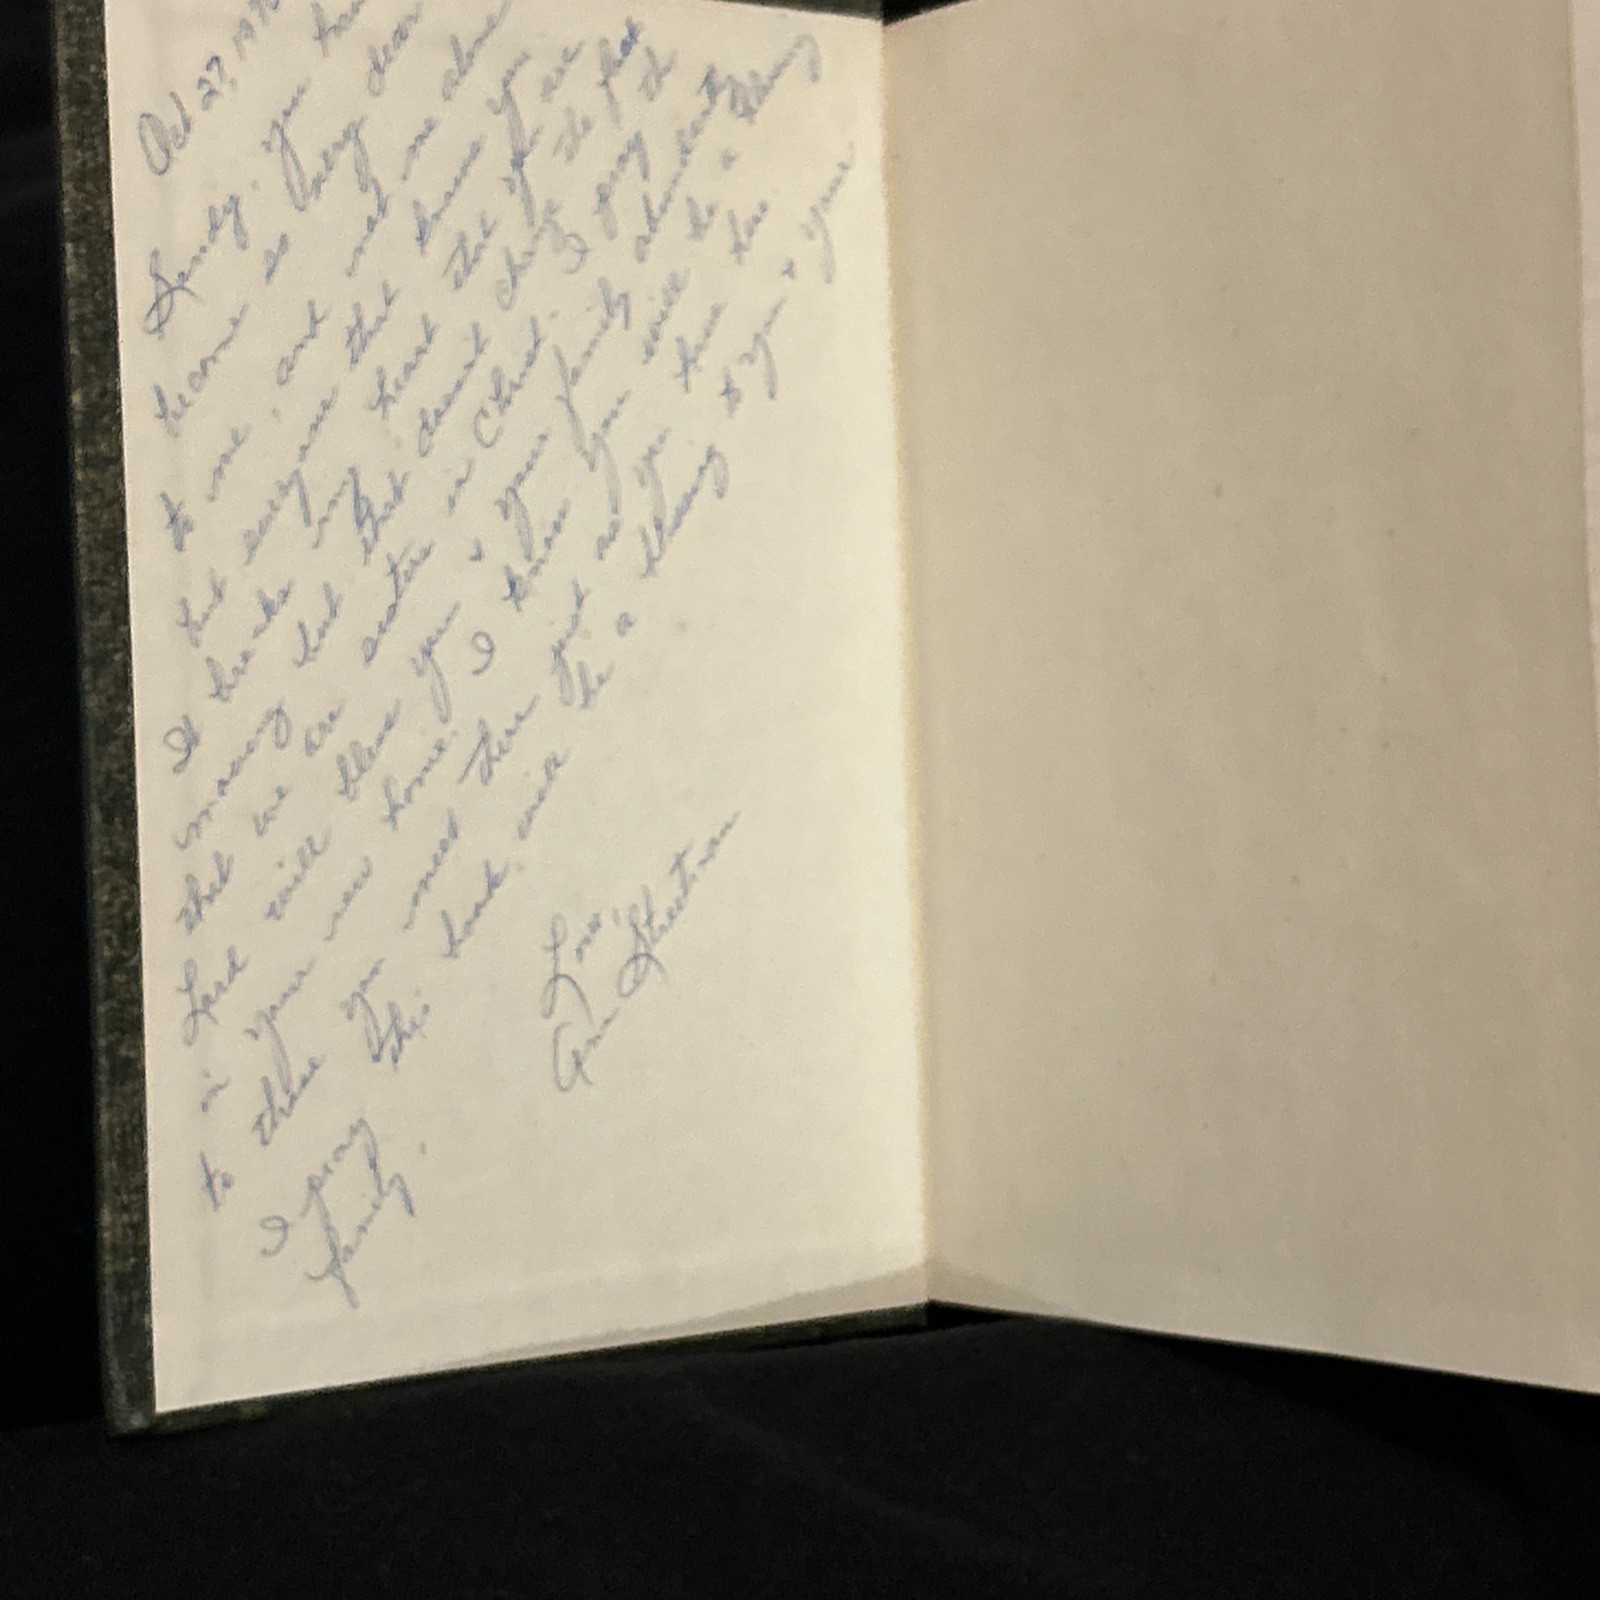 Oct 27, 197
Sandy, you have
become so very dear
to me, and not me alone
but everyone that knows you.
It breaks my heart that you are
moving but that doesn't change the fact
that we are sisters in Christ. I pray the
Lord will bless you & your family abundantly
in your new home. I know you will be a blessing
to those you meet there just as you have here.
I pray this book will be a blessing to you & your
family.
Love,
Ann